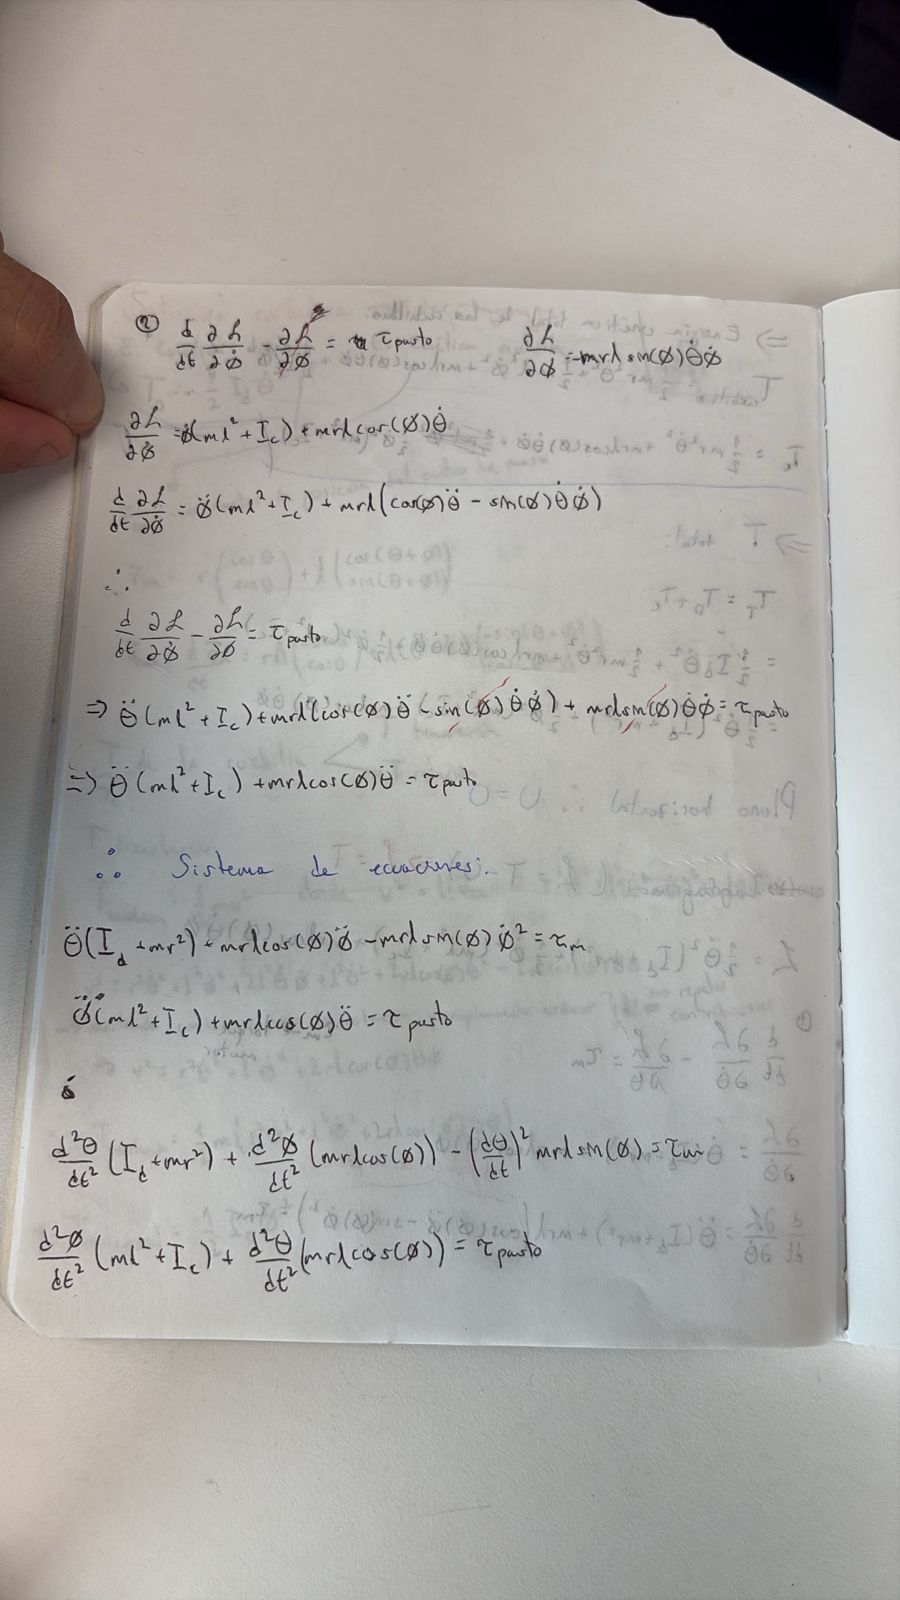 ② d/dt ∂L/∂φ̇ - ∂L/∂φ = τ pasto    ∂L/∂φ = -mrl sin(φ)θ̇φ̇
∂L/∂φ̇ = φ̇(ml² + I_c) + mrl cos(φ)θ̇
d/dt ∂L/∂φ̇ = φ̈(ml² + I_c) + mrl(cos(φ)θ̈ - sin(φ)θ̇φ̇)
∴
d/dt ∂L/∂φ̇ - ∂L/∂φ = τ pasto
⇒ θ̈(ml² + I_c) + mrl(cos(φ)θ̈ - sin(φ)θ̇φ̇) + mrl sin(φ)θ̇φ̇ = τ pasto
⇒ θ̈(ml² + I_c) + mrl cos(φ)θ̈ = τ pasto
∴ Sistema de ecuaciones:
θ̈(I_d + mr²) + mrl cos(φ)φ̈ - mrl sin(φ)φ̇² = τ_m
φ̈(ml² + I_c) + mrl cos(φ)θ̈ = τ pasto
ó
d²θ/dt² (I_d + mr²) + d²φ/dt² (mrl cos(φ)) - (dθ/dt)² mrl sin(φ) = τ_m
d²φ/dt² (ml² + I_c) + d²θ/dt² (mrl cos(φ)) = τ pasto